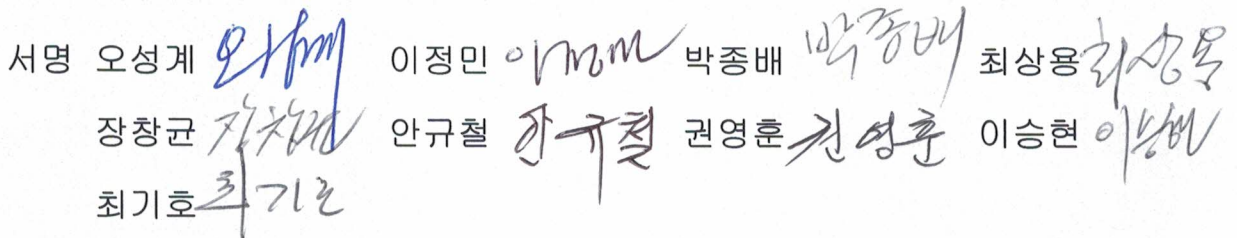 서명 오성계 이정민 이정민 박종배 박종배 최상용 최상용
장창균 장창균 안규철 안규철 권영훈 권영훈 이승현 이승현
최기호 최기호